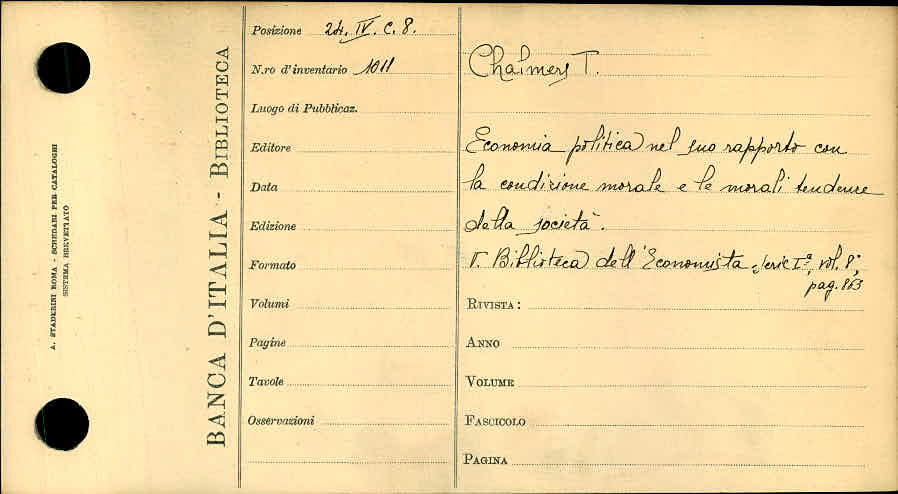 A. STADERINI ROMA - SCHEDARI PER CATALOGHI
SISTEMA BREVETTATO
BANCA D'ITALIA - BIBLIOTECA
Posizione 24. IV. C. 8.
N.ro d'inventario 1011
Luogo di Pubblicaz.
Editore
Data
Edizione
Formato
Volumi
Pagine
Tavole
Osservazioni
Chalmers T.
Economia politica nel suo rapporto con
la condizione morale e le morali tendenze
della società.
V. Biblioteca dell'Economista, serie Iª, vol. 8°,
pag. 863
RIVISTA:
ANNO
VOLUME
FASCICOLO
PAGINA